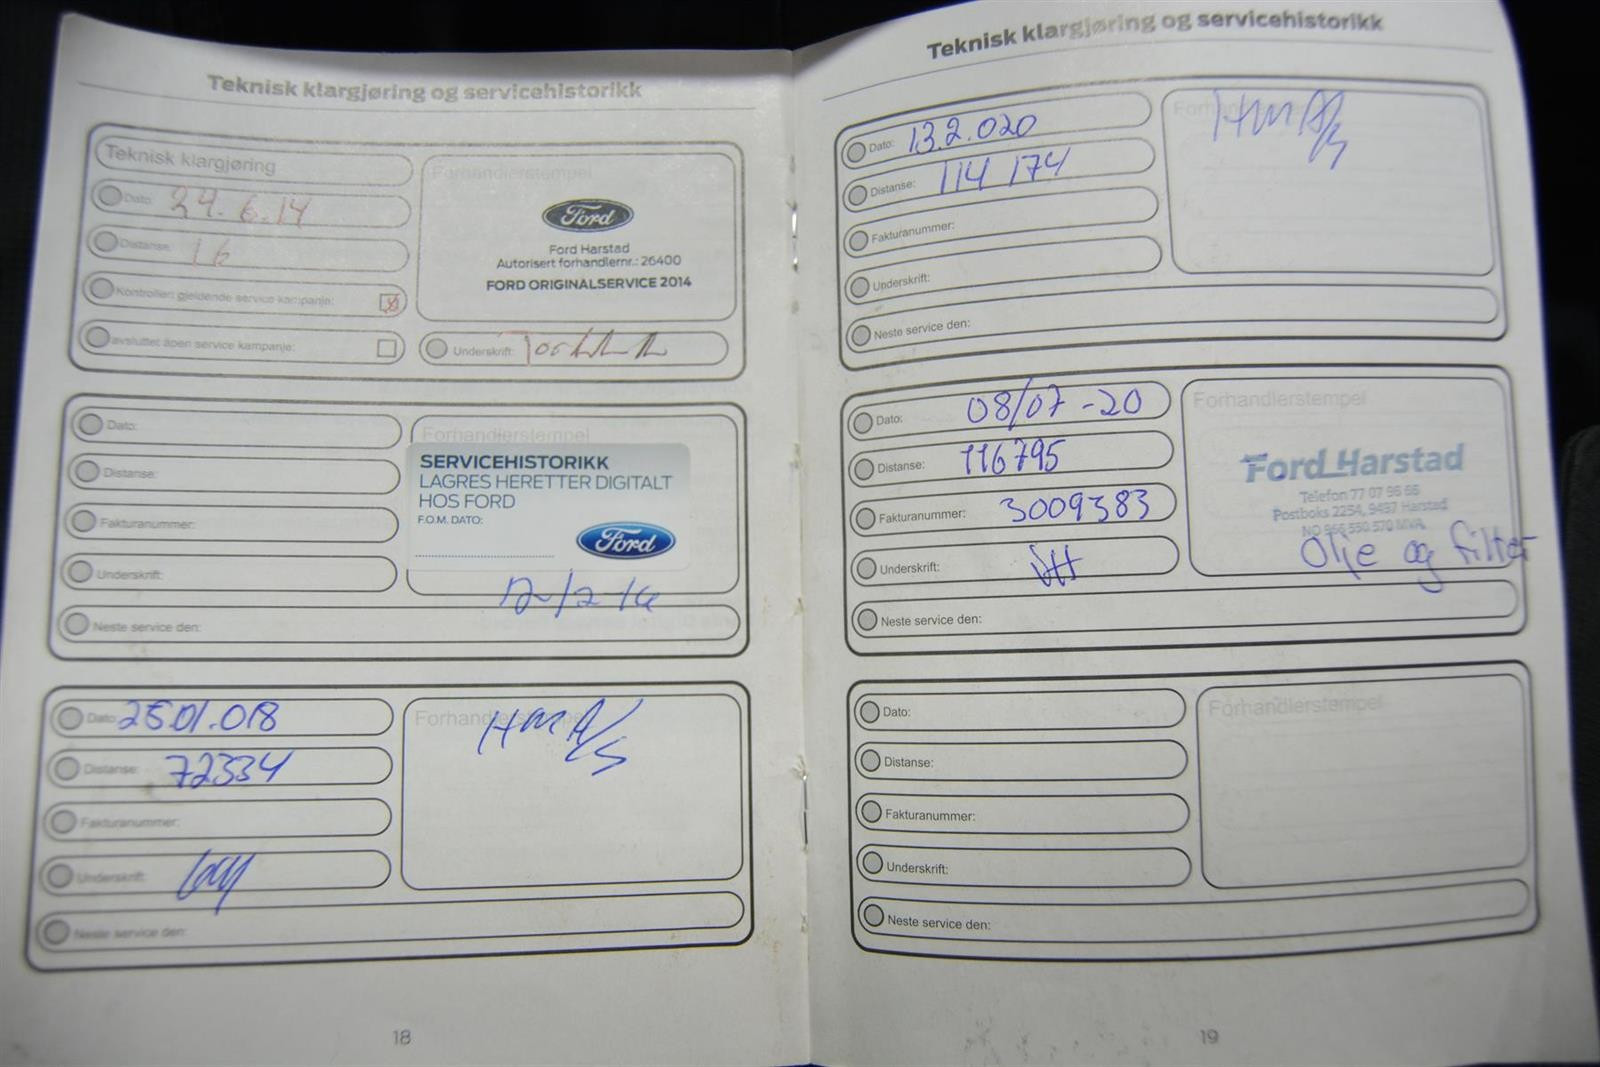 Teknisk klargjøring og servicehistorikk
Teknisk klargjøring
Dato: 24.6.14
Distanse: 16
Kontrollert gjeldende service kampanje:
avsluttet åpen service kampanje:
Forhandlerstempel
Ford
Ford Harstad
Autorisert forhandlernr.: 26400
FORD ORIGINALSERVICE 2014
Underskrift:
Dato:
Distanse:
Fakturanummer:
Underskrift:
Neste service den:
Forhandlerstempel
SERVICEHISTORIKK
LAGRES HERETTER DIGITALT
HOS FORD
F.O.M. DATO:
Ford
Dato: 25.01.018
Distanse: 72334
Fakturanummer:
Underskrift:
Neste service den:
Forhandlerstempel
18
Teknisk klargjøring og servicehistorikk
Dato: 13.2.020
Distanse: 114 174
Fakturanummer:
Underskrift:
Neste service den:
Dato: 08/07-20
Distanse: 116795
Fakturanummer: 3009383
Underskrift:
Neste service den:
Forhandlerstempel
Ford Harstad
Telefon 77 07 96 66
Postboks 2254, 9497 Harstad
NO 966 550 570 MVA
Olje og filter
Dato:
Distanse:
Fakturanummer:
Underskrift:
Neste service den:
Forhandlerstempel
19